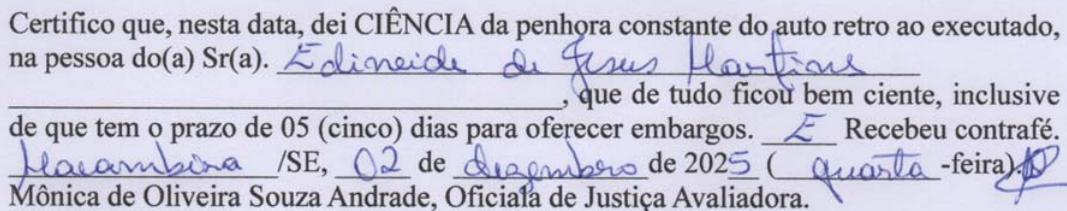 Certifico que, nesta data, dei CIÊNCIA da penhora constante do auto retro ao executado,
na pessoa do(a) Sr(a). Edineide de Jesus Martins
, que de tudo ficou bem ciente, inclusive
de que tem o prazo de 05 (cinco) dias para oferecer embargos. E Recebeu contrafé.
Macambira /SE, 02 de dezembro de 2025 ( quarta -feira).
Mônica de Oliveira Souza Andrade, Oficiala de Justiça Avaliadora.